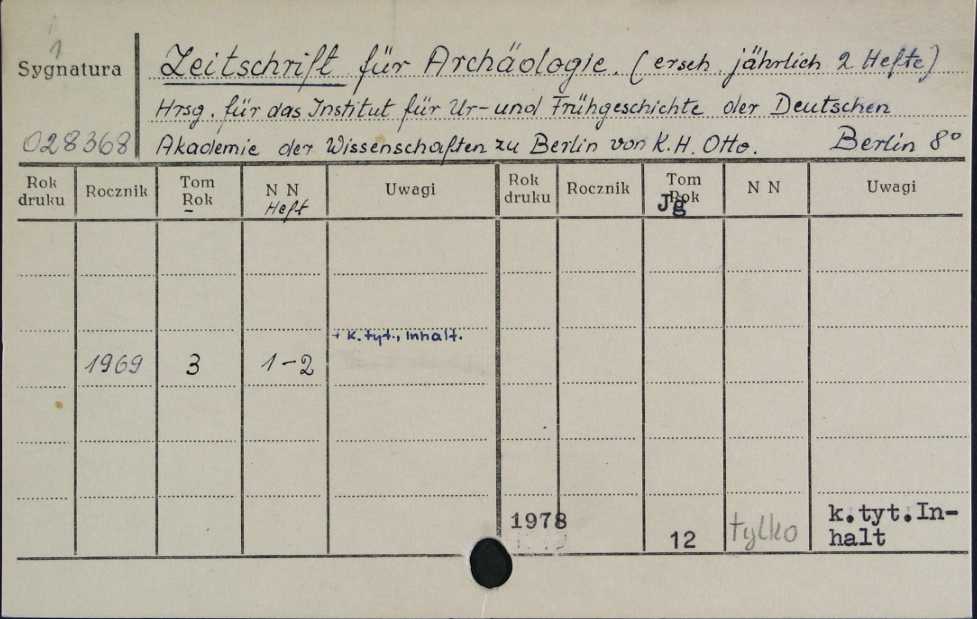 1
Sygnatura
Zeitschrift für Archäologie. (ersch. jährlich 2 Hefte)
Hrsg. für das Institut für Ur- und Frühgeschichte der Deutschen
028368 Akademie der Wissenschaften zu Berlin von K.H. Otto. Berlin 8°
Rok druku Rocznik Tom Rok N N Heft Uwagi Rok druku Rocznik Tom Rok Jg N N Uwagi
+ k.tyt., Inhalt.
1969 3 1-2
1978 12 tylko k.tyt.In-
halt